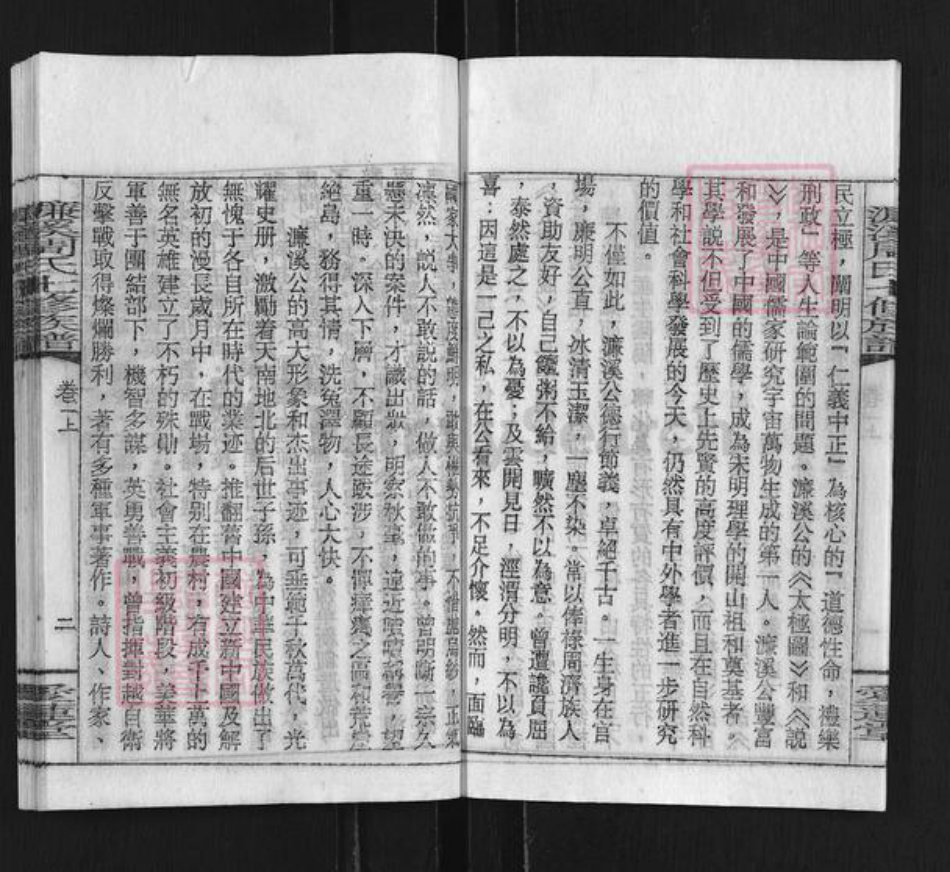 民立極，闡明以「仁義中正」為核心的「道德性命，禮樂
刑政」等人生論範圍的問題。濂溪公的《太極圖》和《說
》，是中國儒家研究宇宙萬物生成的第一人。濂溪公豐富
和發展了中國的儒學，成為宋明理學的開山祖和奠基者。
其學說不但受到了歷史上先賢的高度評價，而且在自然科
學和社會科學發展的今天，仍然具有中外學者進一步研究
的價值。
不僅如此，濂溪公德行節義，卓絕千古。一生身在官
場，廉明公直，冰清玉潔，一塵不染。常以俸祿周濟族人
，資助友好，自己饘粥不給，曠然不以為意。曾遭讒員屈
，泰然處之，不以為憂；及雲開見日，涇渭分明，不以為
喜：因這是一己之私，在公看來，不足介懷。然而，面臨
國家大事，態度鮮明，敢與權勢抗爭，不惜
凜然，說人不敢說的話，做人不敢做的事。曾明斷一宗久
懸未決的案件，才識出眾，明察秋毫，遠近嘖嘖稱譽，望
重一時。深入下層，不顧長途跋涉，不憚瘴癘之區和荒崖
絕島，務得其情，洗冤澤物，人心大快。
濂溪公的高大形象和杰出事迹，可垂範千秋萬代，光
耀史册，激勵着天南地北的后世子孫，為中華民族做出了
無愧于各自所在時代的業迹。推翻舊中國建立新中國及解
放初的漫長歲月中，在戰場，特别在農村，有成千上萬的
無名英雄建立了不朽的殊勛。社會主義初級階段，美華將
軍善于團結部下，機智多謀，英勇善戰，曾指揮對越自衛
反擊戰取得燦爛勝利，著有多種軍事著作。詩人、作家、
濂溪周氏七修族譜
卷二上
二
愛蓮堂